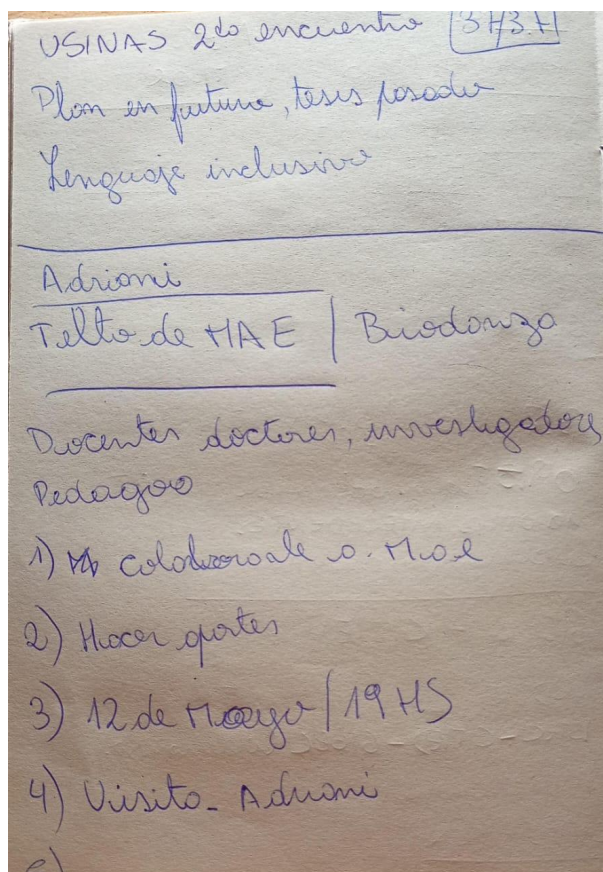 USINAS 2do encuentro
Plan en futuro, tesis pasado
Lenguaje inclusivo
Adriani
de MAE / Biodanza
Docentes doctores, investigadores
Pedagogo
1) a Mae
2) Hacer aportes
3) 12 de Mayo / 19 HS
4) Visita - Adriani